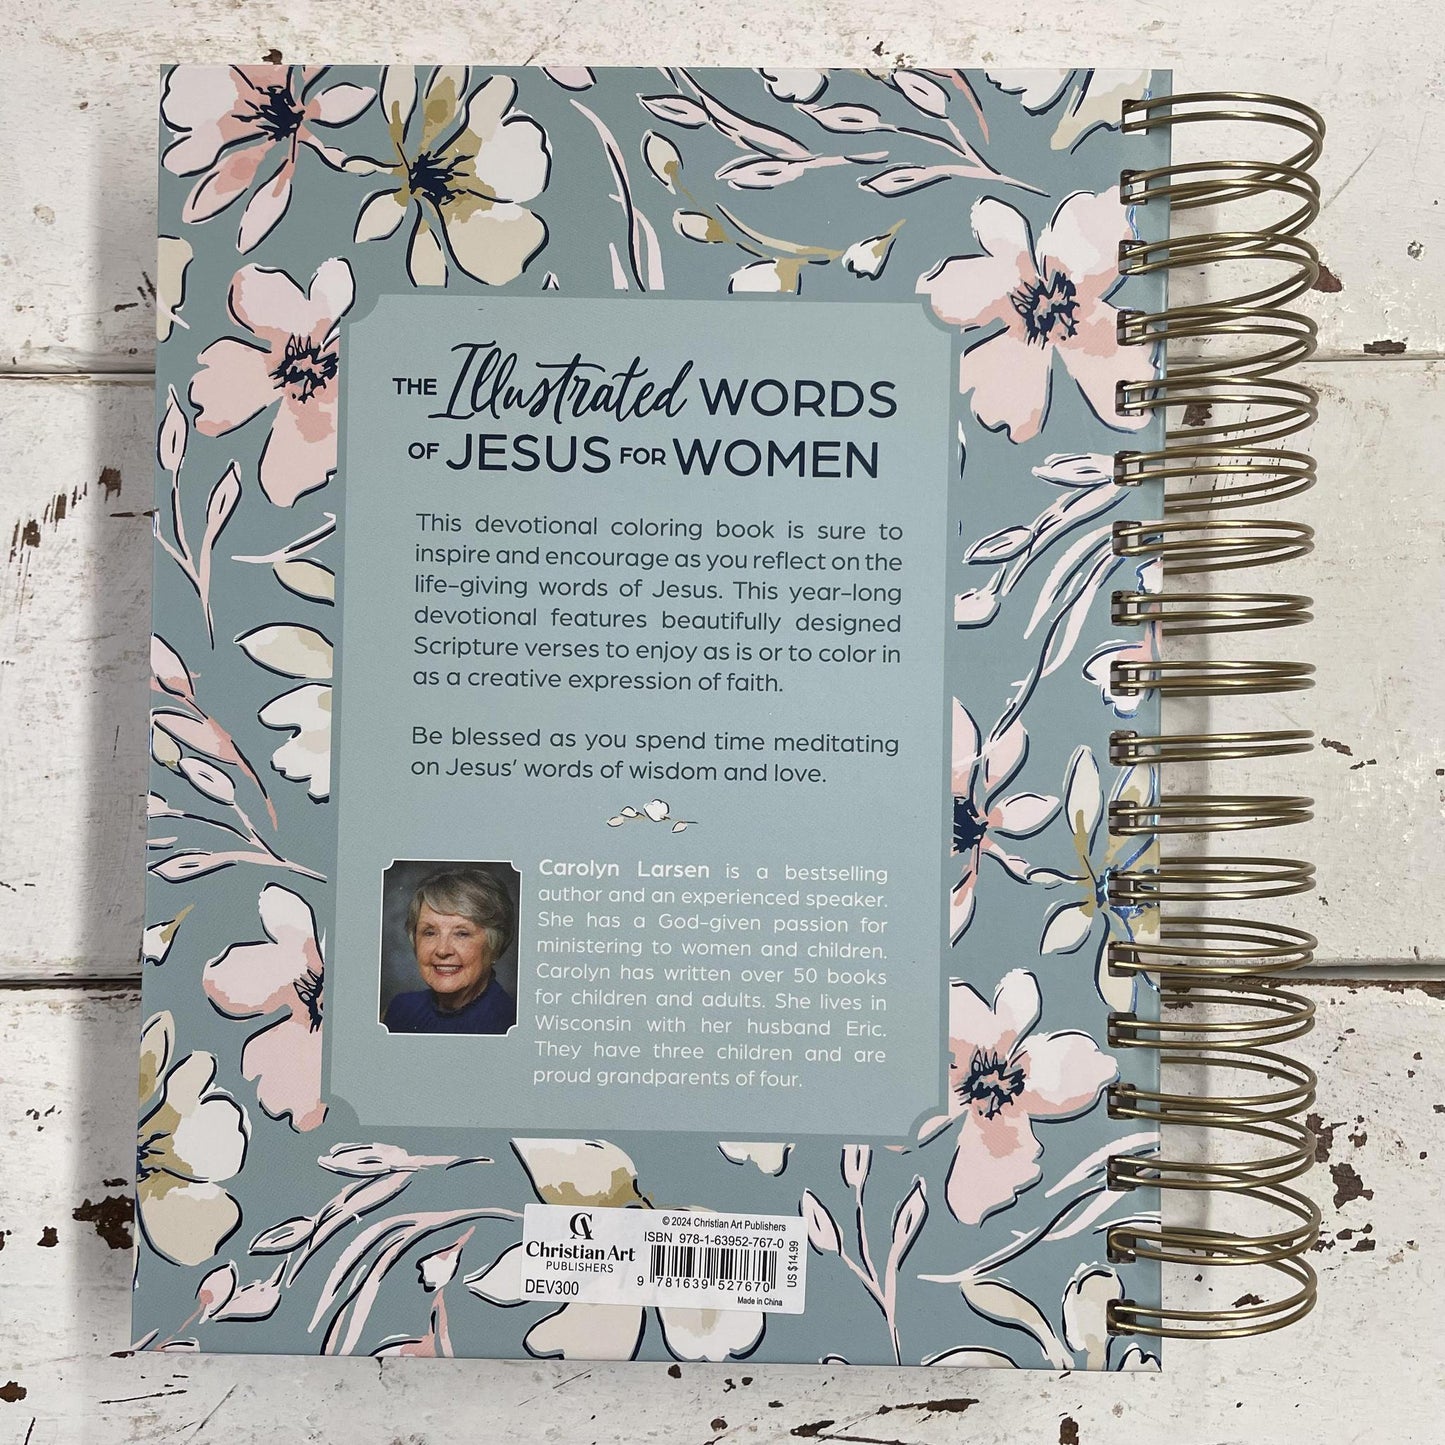 THE Illustrated WORDS
OF JESUS FOR WOMEN
This devotional coloring book is sure to
inspire and encourage as you reflect on the
life-giving words of Jesus. This year-long
devotional features beautifully designed
Scripture verses to enjoy as is or to color in
as a creative expression of faith.
Be blessed as you spend time meditating
on Jesus' words of wisdom and love.
Carolyn Larsen is a bestselling
author and an experienced speaker.
She has a God-given passion for
ministering to women and children.
Carolyn has written over 50 books
for children and adults. She lives in
Wisconsin with her husband Eric.
They have three children and are
proud grandparents of four.
CA
Christian Art
PUBLISHERS
DEV300
© 2024 Christian Art Publishers
ISBN 978-1-63952-767-0
9 781639 527670
US $14.99
Made in China